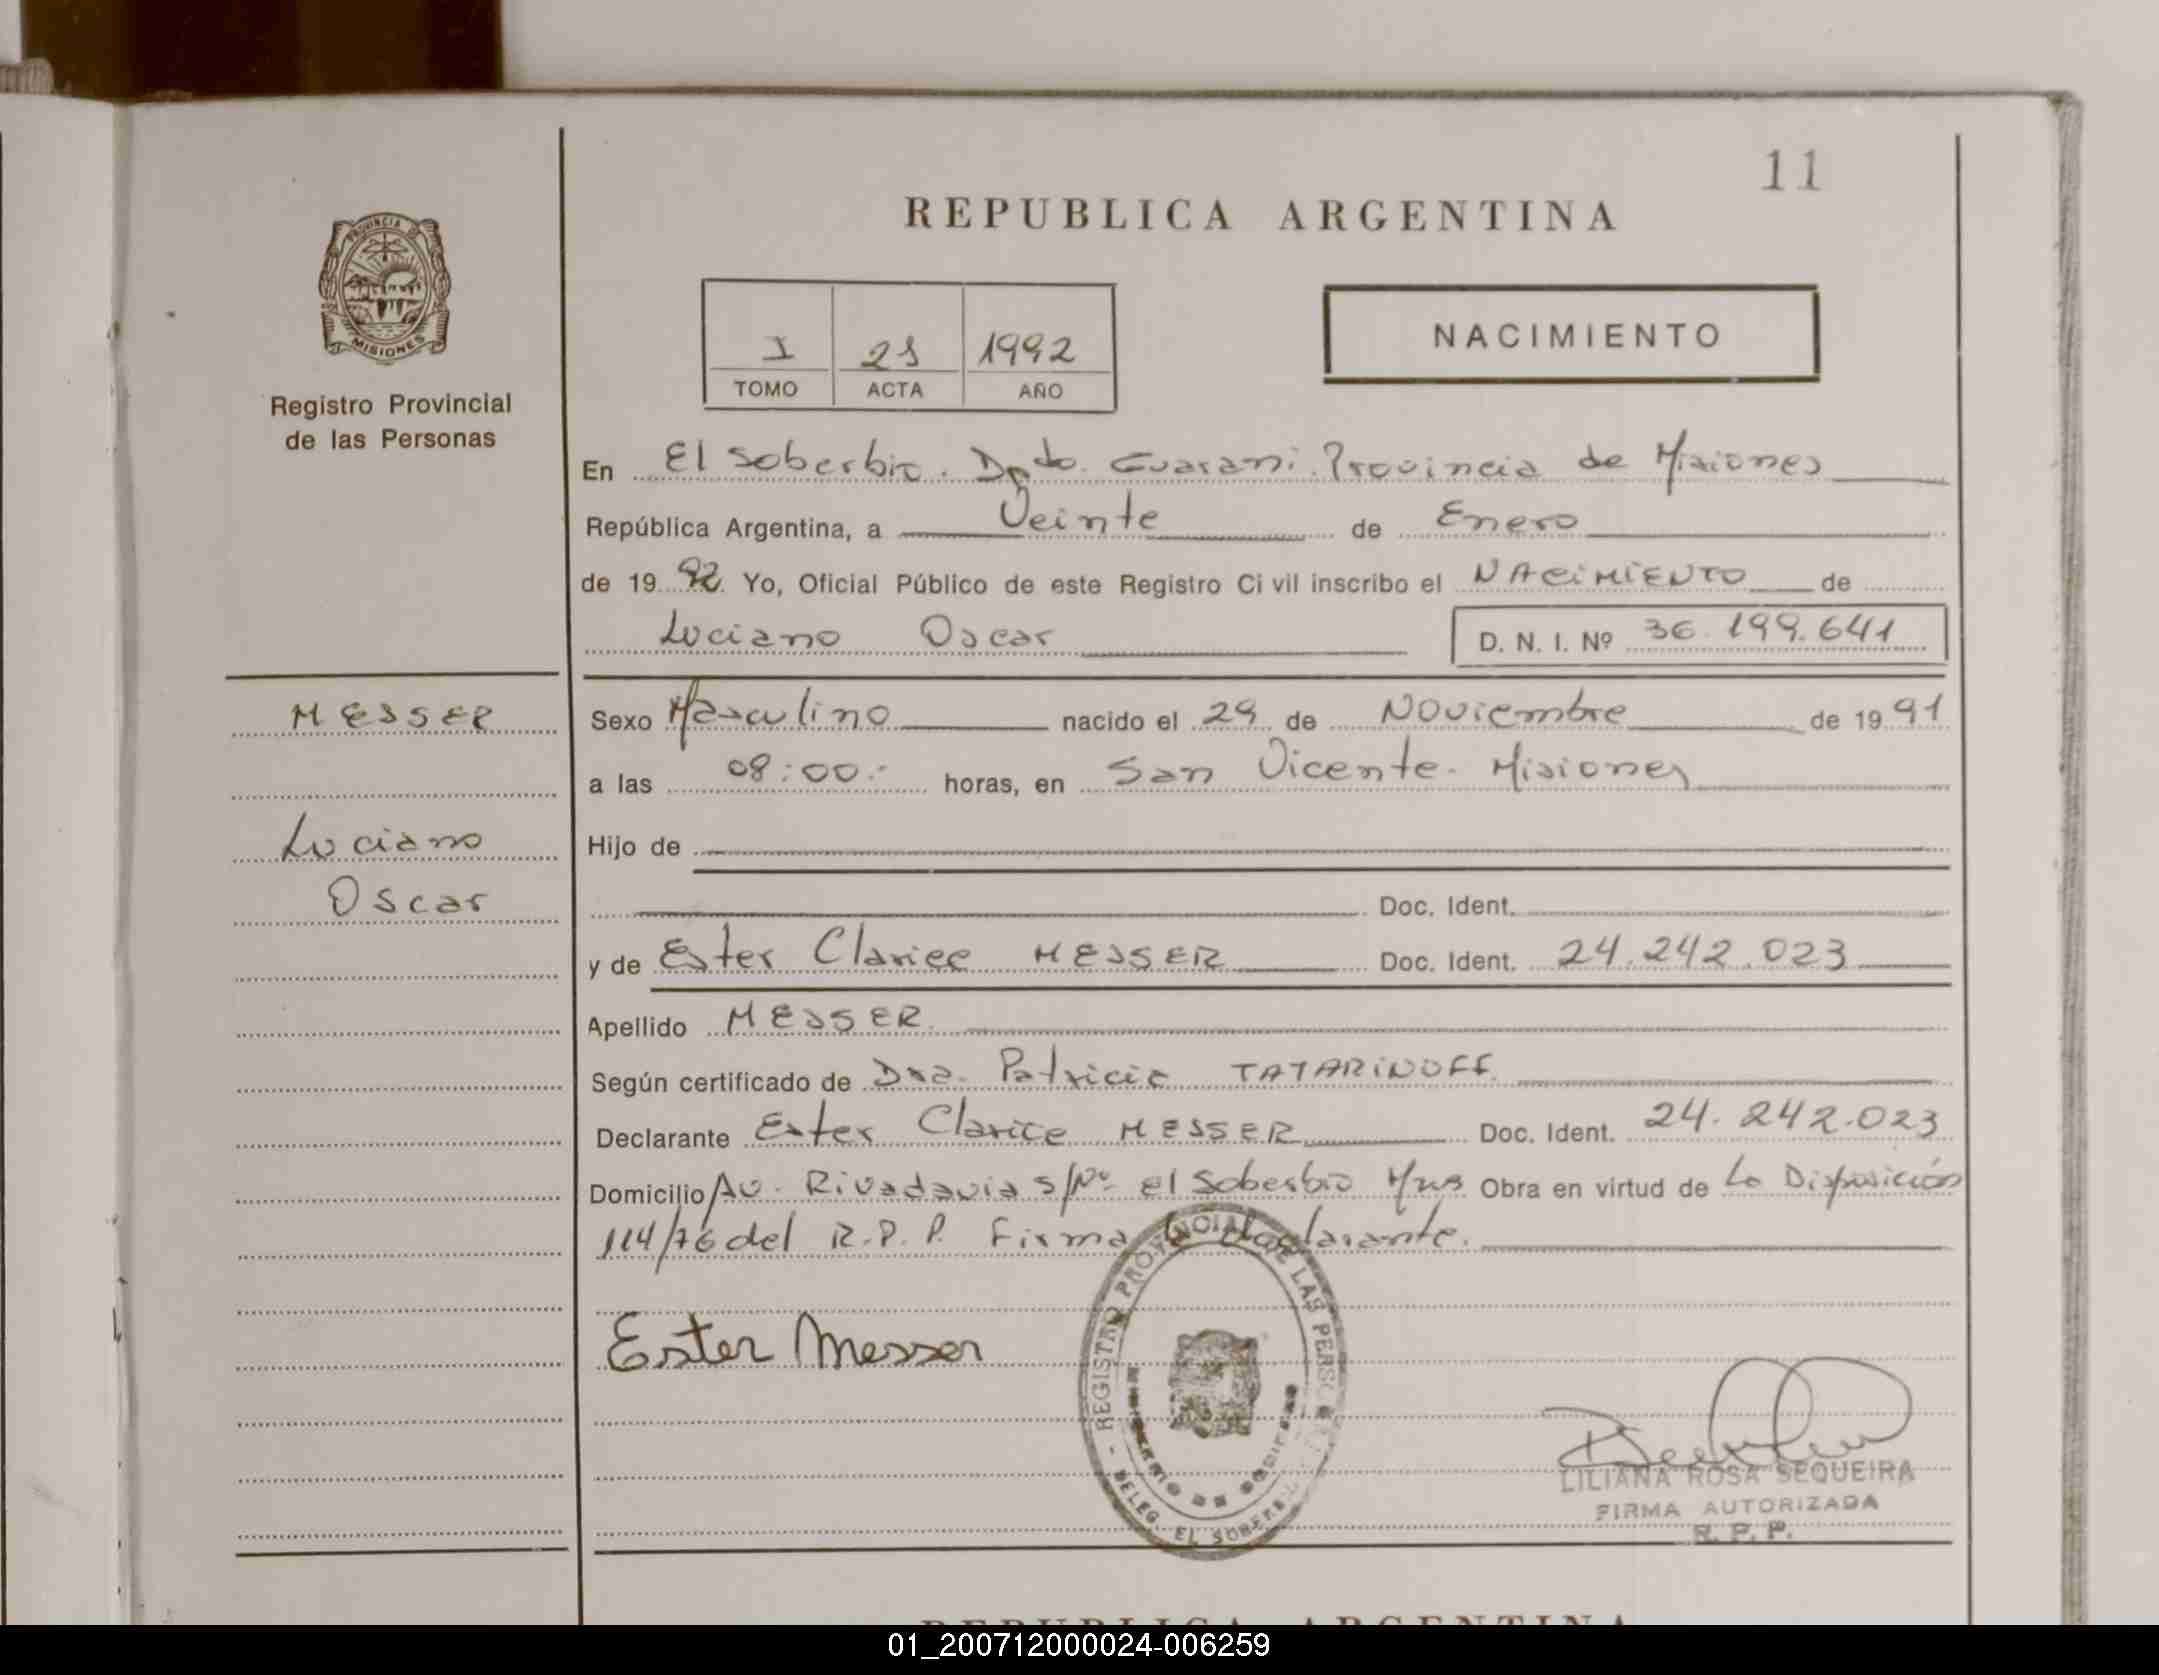 11
REPUBLICA ARGENTINA
PROVINCIA DE
MISIONES
Registro Provincial
de las Personas
I 21 1992
TOMO ACTA AÑO
NACIMIENTO
En El Soberbio. Dpto. Guarani. Provincia de Misiones
República Argentina, a Veinte de Enero
de 1992. Yo, Oficial Público de este Registro Civil inscribo el NACIMIENTO de
Luciano Oscar
D. N. I. Nº 36.199.641
MESSER
Luciano
Oscar
Sexo Masculino nacido el 29 de Noviembre de 1991
a las 08:00.- horas, en San Vicente. Misiones
Hijo de
Doc. Ident.
y de Ester Clarice MESSER Doc. Ident. 24.242.023
Apellido MESSER.
Según certificado de Dra. Patricia TATARINOFF.
Declarante Ester Clarice MESSER Doc. Ident. 24.242.023
Domicilio Av. Rivadavia S/Nº El Soberbio Mns Obra en virtud de la Disposición
114/76 del R.P.P. Firma la declarante.
Ester Messer
REGISTRO PROVINCIAL DE LAS PERSO
DELEG. EL SOBERBIO
LILIANA ROSA SEQUEIRA
FIRMA AUTORIZADA
R. P. P.
REPUBLICA ARGENTINA
01_200712000024-006259